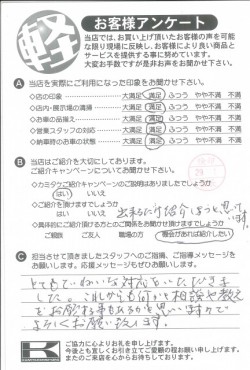 軽
お客様アンケート
当店では、お買い上げ頂いたお客様の声を可能
な限り現場に反映し、お客様により良い商品と
サービスを提供する事に努めています。
大変お手数ですが是非お声をお聞かせ下さい。
A 当店を実際にご利用になった印象をお聞かせ下さい。
◇店の印象 大満足 満足 ふつう やや不満 不満
◇店内・展示場の清掃 大満足 満足 ふつう やや不満 不満
◇お車の品揃え 大満足 満足 ふつう やや不満 不満
◇営業スタッフの対応 大満足 満足 ふつう やや不満 不満
◇納車時のお車の状態 大満足 満足 ふつう やや不満 不満
B 当店はご紹介を大切にしております。
ご紹介キャンペーンについてお聞かせ下さい。
◇カミタケご紹介キャンペーンのご説明はありましたでしょうか
はい いいえ
◇ご紹介を頂けますでしょうか
出来るだけ紹介しようと思って
います。
◇具体的にご紹介頂ける方とのご関係をお聞かせ頂けますでしょうか
ご親戚 ご友人 職場の方 機会があれば紹介したい
C 担当させて頂きましたスタッフへのご指摘、ご指導メッセージを
お願いします。応援メッセージもぜひお願いします。
とてもていねいな対応をいただきま
した。これからも何かと相談や教え
をお願いする事もあるかと思いますので
よろしくお願い致します。
K
ご協力に心よりお礼を申し上げます。
今後とも宜しくお引き立てご愛顧の程お願い申し上げます。
またのご来店を心からお待ちしております。